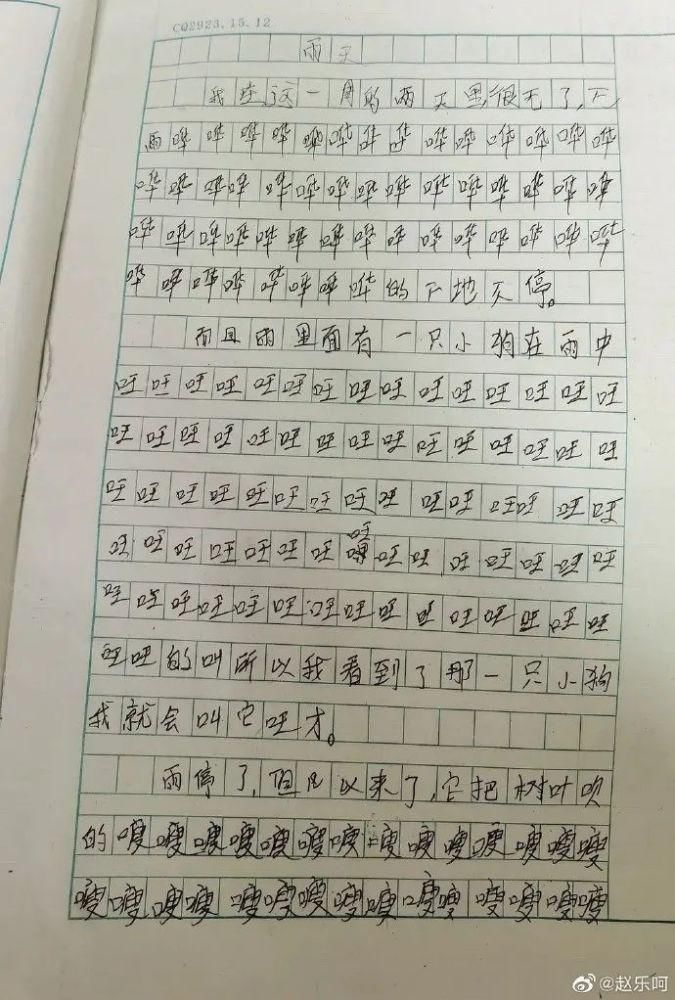 CQ2923.15.12
雨天
我在这一周的雨天里很无了,下
雨哗哗哗哗哗哗哗哗哗哗哗哗哗哗
哗哗哗哗哗哗哗哗哗哗哗哗哗哗哗
哗哗哗哗哗哗哗哗哗哗哗哗哗哗哗
哗哗哗哗哗哗哗哗的下地天停。
而且雨里面有一只小狗在雨中
旺旺旺旺旺旺旺旺旺旺旺旺旺旺旺
旺旺旺旺旺旺旺旺旺旺旺旺旺旺旺
旺旺旺旺旺旺旺旺旺旺旺旺旺旺旺
旺旺旺旺旺旺旺旺旺旺旺旺旺旺旺
旺旺旺旺旺旺旺旺旺旺旺旺旺旺旺
旺旺的叫所以我看到了那一只小狗
我就会叫它旺才。
雨停了,但风以来了,它把树叶吹
的嗖嗖嗖嗖嗖嗖嗖嗖嗖嗖嗖嗖嗖嗖
嗖嗖嗖嗖嗖嗖嗖嗖嗖嗖嗖嗖嗖嗖嗖
@赵乐呵